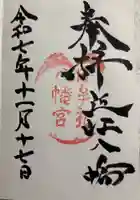 奉拝 近江八幡
幡宮
令和七年十一月十七日